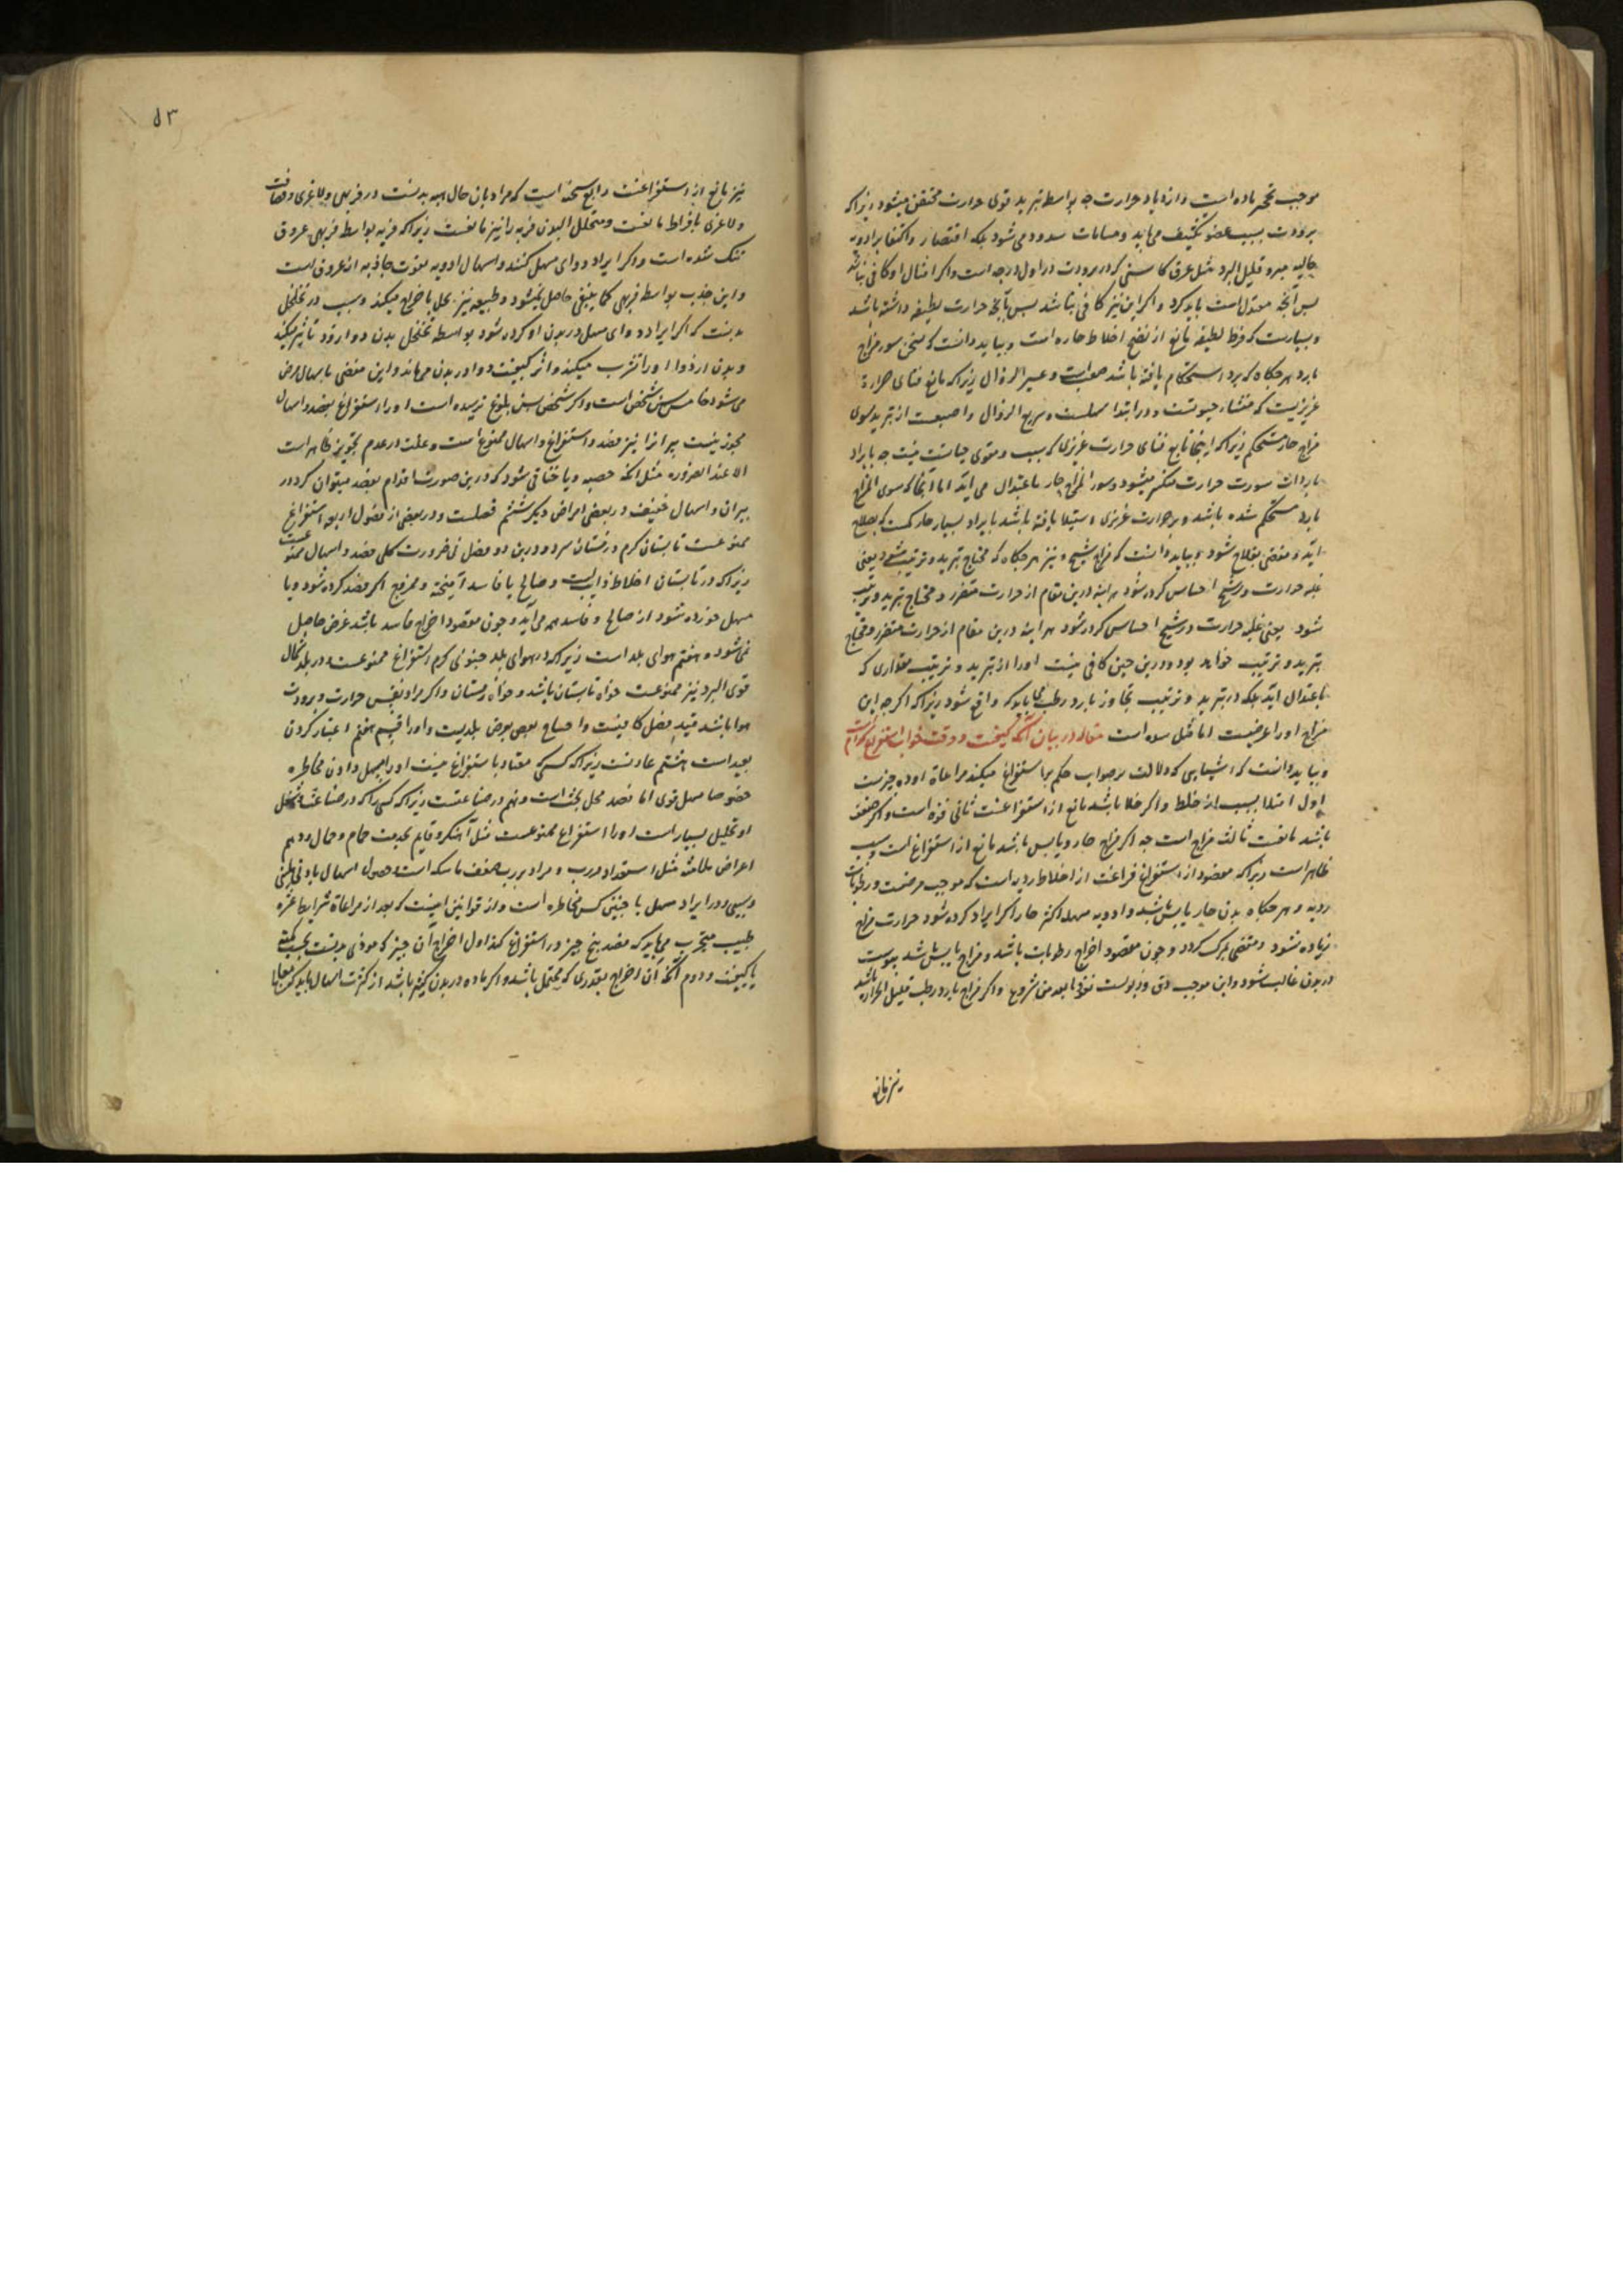 موجب تحجر ماده است و ازدیاد حرارت چه بواسطه تبرید قوی حرارت محتقن میشود زیراکه
برودت بسبب عضو تکثیف می یابد و مسامات مسدود می شود بلکه اقتصار و اکتفا برادویه
جالیه مبرد قلیل البرد مثل عرق کاسنی که در برودت در اول درجه است و اکر امثال او کافی نباشد
بس آنچه معتدل است باید کرد و اکر این نیز کافی نباشد بس بآنچه حرارت لطیفه داشته باشد
و بسیارست که فرط لطیفه مانع از نضج اخلاط حاره است و بباید دانست که تسخین سور مزاج
بارد هر جکاه که برد استحکام یافته باشد صعبست و عسیر الزوال زیراکه مانع فنای حرارة
غریزیست که منشاء حیوتست و در ابتدا سهلست و سریع الزوال و اصعبست از تبرید سوی
مزاج حار مستحکم زیراکه اینجا تابع فنای حرارت غریزی که سبب و مقوی حیاتست نیست چه بایراد
باردات سورت حرارت منکسر میشود و سور المزاج حار باعتدال می اید اما آنجا که سوی المزاج
بارد مستحکم شده باشد و بر حرارت غریزی استیلا یافته باشد بایراد بسیار حار کست که بصلاح
اید و مفضی بفلاح شود و بباید دانست که مزاج شیخ و نیز هر جکاه که محتاج بتبرید و ترتیب شود یعنی
غلبه حرارت در شیخ احساس کرده شود هر اینه درین مقام از حرارت متضرر و محتاج بتبرید و ترتیب
شود یعنی غلبه حرارت در شیخ احساس کرده شود هر اینه درین مقام از حرارت متضرر و محتاج
بتبرید و ترتیب خواهد بود و درین حین کافی نیست اورا از تبرید و ترتیب مقداری که
باعتدال اید بلکه در تبرید و ترتیب تجاوز بارد رطب می باید که واقع شود زیراکه اکرچه این
مزاج اورا عرضیست اما مثل سده است مقاله در بیان آنکه کیخت و وقت خواب استفراغ کدام است
و بباید دانست که اشیایی که دلالت بر صواب حکم باستفراغ میکند مراعاة او ده چیزست
اول امتلا بسبب از خلط و اکر خلا باشد مانع از استفراغست ثانی قوه است و اکر ضعف
باشد مانعست ثالث مزاج است چه اکر مزاج حار و یابس باشد مانع از استفراغ است و سبب
ظاهر است زیراکه مقصود از استفراغ فراغت از اخلاط ردیه است که موجب مرضست و رطوبات
ردیه و هر جکاه بدن حار یابس باشد و ادویه مسهله اکثر حار اکر ایراد کرده شود حرارت مزاج
زیاده شود و مقتضی بمرک کردد و چون مقصود اخراج رطوبات باشد و مزاج یابس باشد یبوست
در بدن غالب شود و این موجب دق و ذبولست نعوذ بالله من شرورها و اکر مزاج بارد رطب قلیل الحراره باشد
نیز مانع
٥٣
نیز مانع از استفراغست رابع سحنه است که مراد بان حال هیه بدنست در فربهی و لاغری و قضافت
و لاغری بافراط مانعست و متخلل البدن فربه را نیز مانعست زیراکه فربه بواسطه فربهی عروق
تنک شده است و اکر ایراد دوای مسهل کنند و اسهال ادویه بقوت جاذبه از عروق است
و این جذب بواسطه فربهی کما ینبغی حاصل نمیشود و طبیعه نیز بخل باخراج میکند و سبب در تخلخل
بدنست که اکر ایراد دوای مسهل در بدن او کرده شود بواسطه تخلخل بدن دوا زود تاثیر میکند
و بدن ازو دوا اورا تشرب میکند و اثر کیفیت دوا در بدن می ماند و این مفضی باسهال مرض
می شود خامس سن شخص است و اکر شخص بسن بلوغ نرسیده است اورا استفراغ بفصد و اسهال
مجوز نیست پیرانرا نیز فصد و استفراغ و اسهال ممنوعست و علت در عدم تجویز ظاهر است
الا عند الضروره مثل انکه حصبه و یا خناقی شود که درین صورتها اقدام بفصد میتوان کرد در
پیران و اسهال خفیف در بعضی امراض دیکر ششم فصلست و در بعضی از فصول اربعه استفراغ
ممنوعست تابستان کرم و زمستان سرد و درین دو فصل بی ضرورت کلی فصد و اسهال ممنوعست
زیراکه در تابستان اخلاط ذایبست و صالح با فاسد آمیخته و ممزوج اکر فصد کرده شود و یا
مسهل خورده شود از صالح و فاسد همه می آید و چون مقصود اخراج فاسد باشد غرض حاصل
نمی شود و هفتم هوای بلد است زیراکه در هوای بلد جنوبی کرم استفراغ ممنوعست و در بلد شمال
قوی البرد نیز ممنوعست خواه تابستان باشد و خواه زمستان و اکر مراد نفس حرارت و برودت
هوا باشد قید فصل کافیست و احتیاج بعرض بلد نیست و اورا قسم هفتم اعتبار کردن
بعید است هشتم عادتست زیراکه کسی که معتاد باستفراغ نیست اورا مسهل دادن مخاطره
خصوصا مسهل قوی اما فصد محل بحث است و نهم در صناعتست زیراکه کسی راکه در صناعت
او تحلیل بسیار است اورا استفراغ ممنوعست مثل آهنکر و قایم بخدمت حمام و حمال و دهم
اعراض ملائمه مثل استعداد ذرب و مراد بذرب ضعف ماسکه است و حصول اسهال بادنی ملینی
و سببی در ایراد مسهل با چنین کس مخاطره است و از قوانین اینست که بعد از مراعاة شرایط عشره
طبیب متجرب می باید که قصد پنج چیز در استفراغ کند اول اخراج آن چیز که موذی بدنست بحسب کمیت
یا کیفیت و دوم آنکه آن اخراج بقدری که محتمل باشد و اکر ماده در بدن کثیر باشد از کثرت اسهال باید که